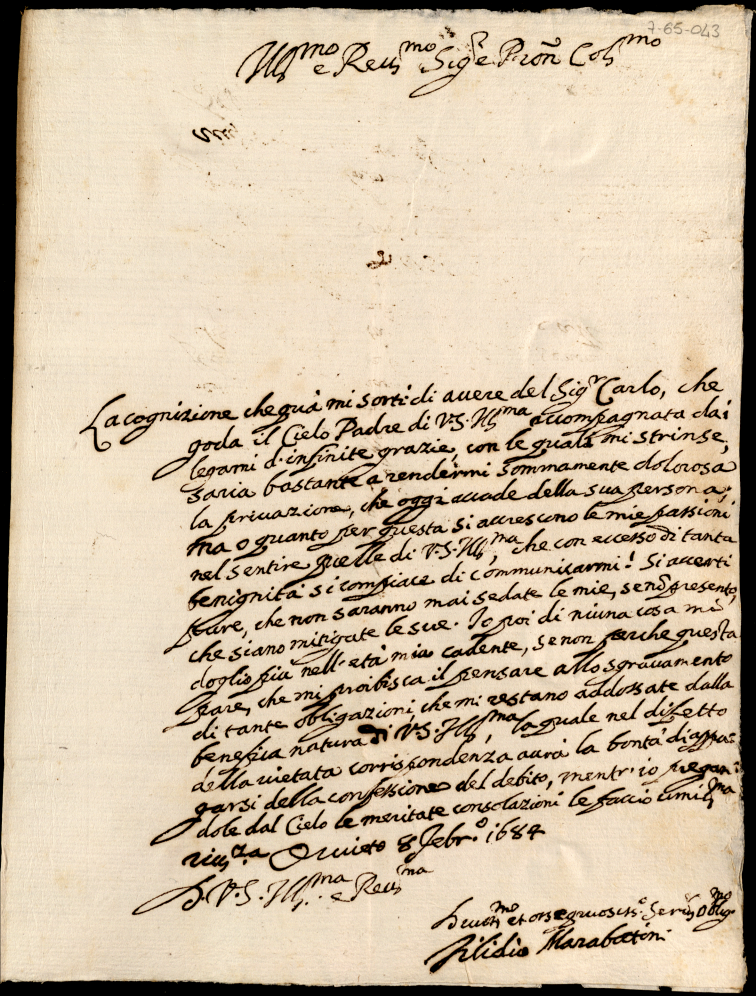 7-65-043
Ill.mo e Reu.mo Sig.r e Pron Col.mo
La cognizione che quà mi sortì di auere del Sig.r Carlo, che
goda il Cielo Padre di V.S. Ill.ma accompagnata dai
legami d'infinite grazie, con le quali mi strinse,
saria bastante a rendermi sommamente dolorosa
la priuazione, che oggi accade della sua persona;
ma o quanto per questa si accrescono le mie passioni
nel sentire quelle di V.S. Ill.ma, che con eccesso di tanta
benignità si compiace di communicarmi! Si accerti
pure, che non saranno mai sedate le mie, se non presento,
che siano mitigate le sue. Io poi di niuna cosa mi
doglio più nell'età mia cadente, se non perche questa
pare, che mi proibisca il pensare allo sgrauamento
di tante obligazioni, che mi restano addossate dalla
benefica natura di V.S. Ill.ma, la quale nel difetto
della uietata corrispondenza aurà la bontà di appa=
garsi della confessione del debito, mentr'io pregan=
dole dal Cielo le meritate consolazioni le faccio umiliss.ma
riu.za Oruieto 8 Febr.o 1684
D. V.S. Ill.ma e Reu.ma
Diuotiss.mo et ossequiosiss.o Ser.e Oblig.mo
Filidio Marabottini